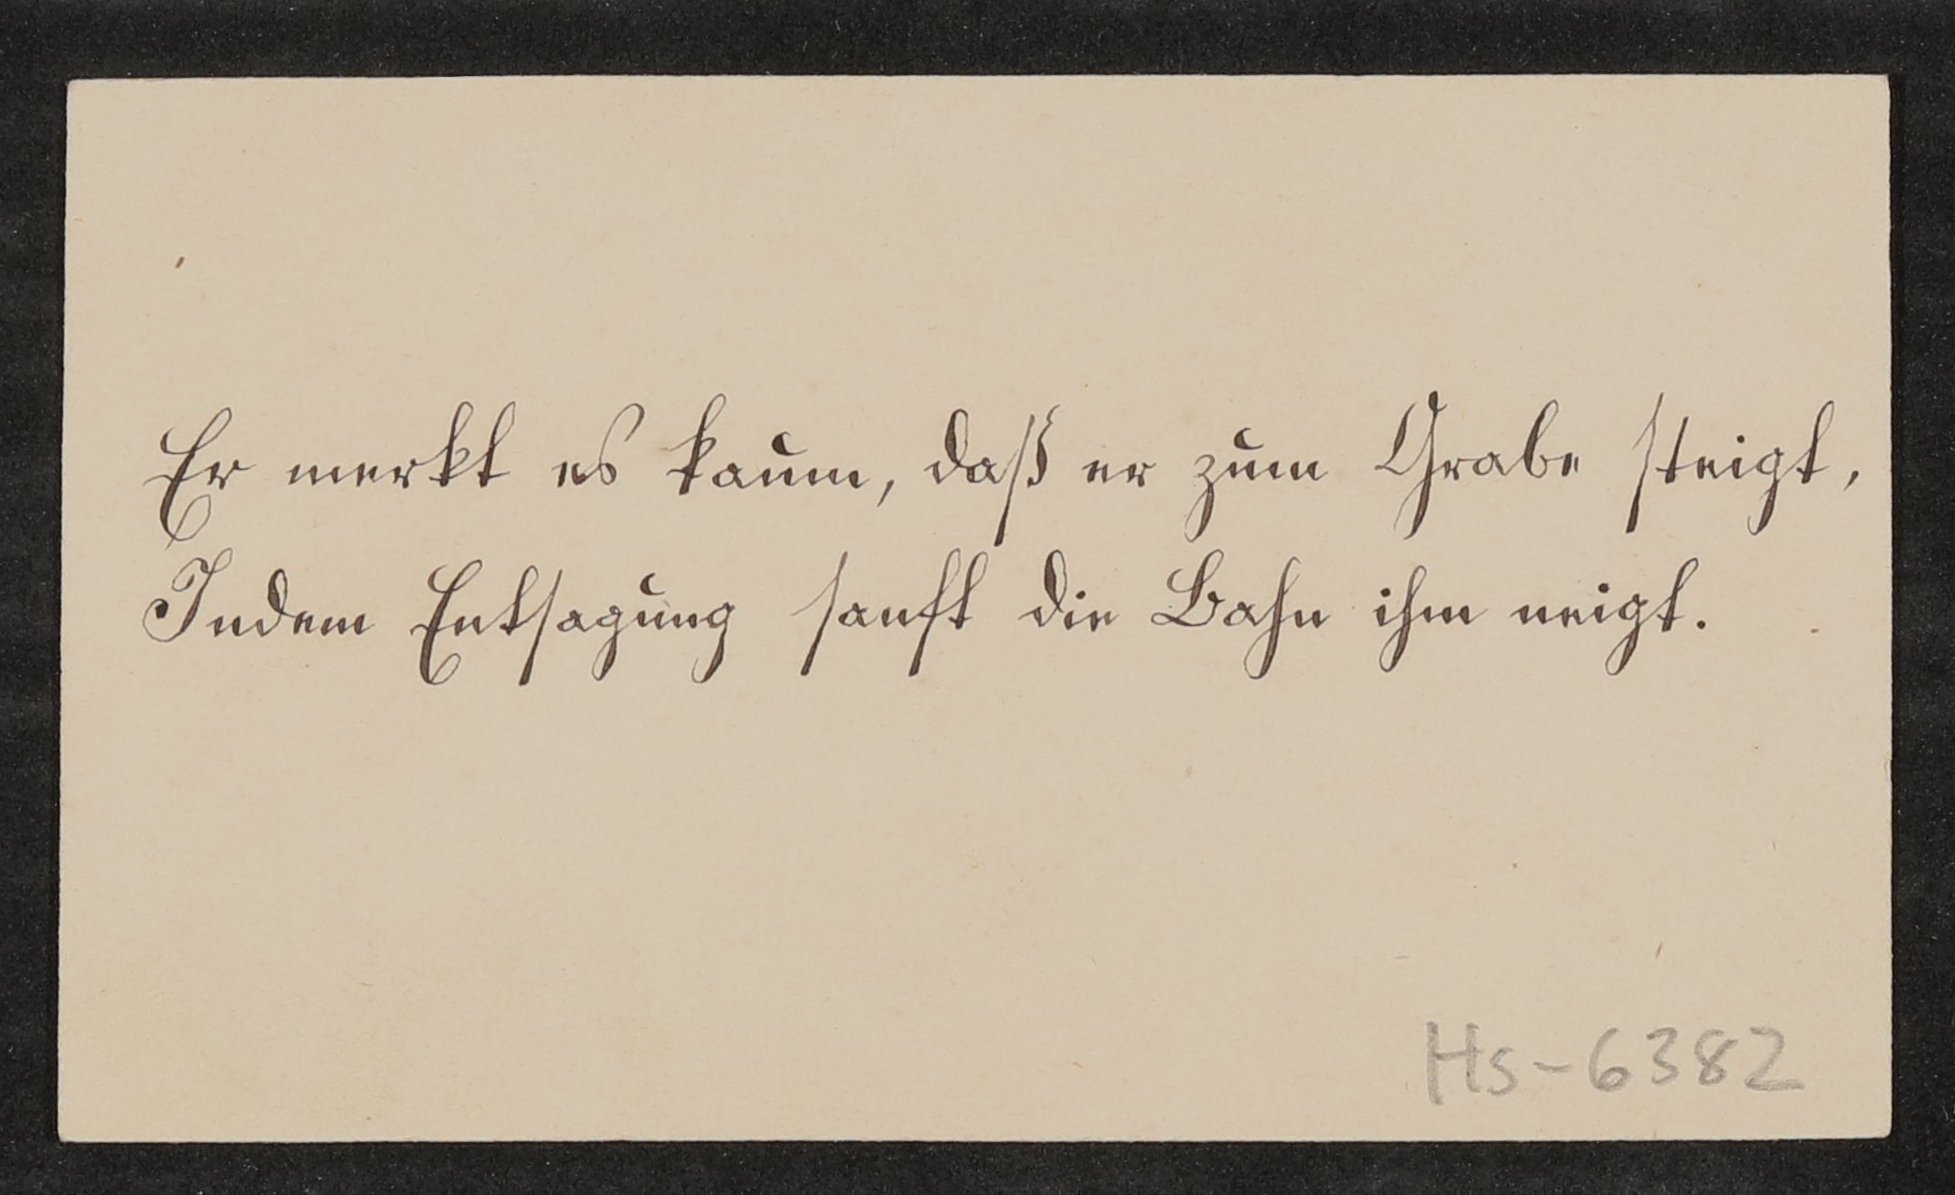 Er merkt es kaum, daß er zum Grabe steigt,
Indem Entsagung sanft die Bahn ihm neigt.
Hs-6382